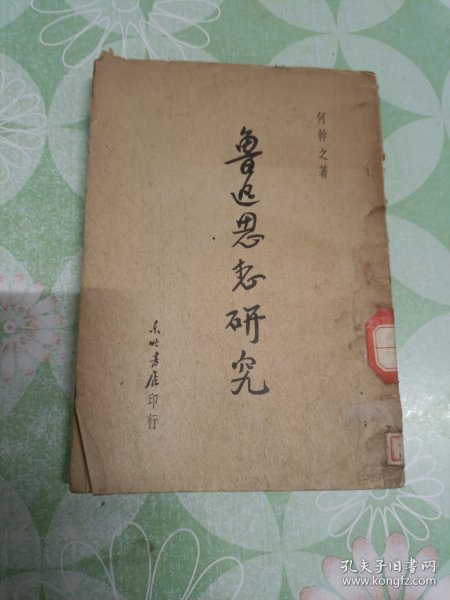 何幹之著
鲁迅思想研究
东北书店印行
孔夫子旧书网
www.kongfz.com